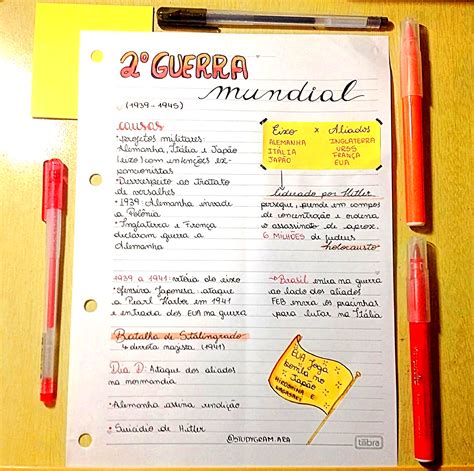 2º GUERRA
mundial
(1939-1945)
causas
• projetos militares:
Alemanha, Itália e Japão
(eixo) com intenções ex-
pansionistas
• Desrespeito ao tratato
de versalhes
• 1939: Alemanha invade
a Polônia
• Inglaterra e França
declaram guerra a
Alemanha
Eixo x Aliados
ALEMANHA INGLATERRA
ITÁLIA URSS
JAPÃO FRANÇA
EUA
liderado por Hitler
persegue, prende em campos
de concentração e ordena
o assassinato de aprox.
6 MILHÕES de judeus
→holocausto
1939 a 1941: vitória do eixo
• ofensiva japonesa: ataque
a Pearl Harbor em 1941
e entrada dos EUA na guerra
→Brasil entra na guerra
ao lado dos aliados
FEB envia os pracinhas
para lutar na Itália
Batalha de Stalingrado
↳ derrota nazista (1941)
Dia D: Ataque dos aliados
na normandia
• Alemanha assina rendição
• Suicídio de Hitler
EUA joga
bomba no
Japão
HIROSHIMA E
NAGASAKI
@STUDYGRAM.ARA
tilibra